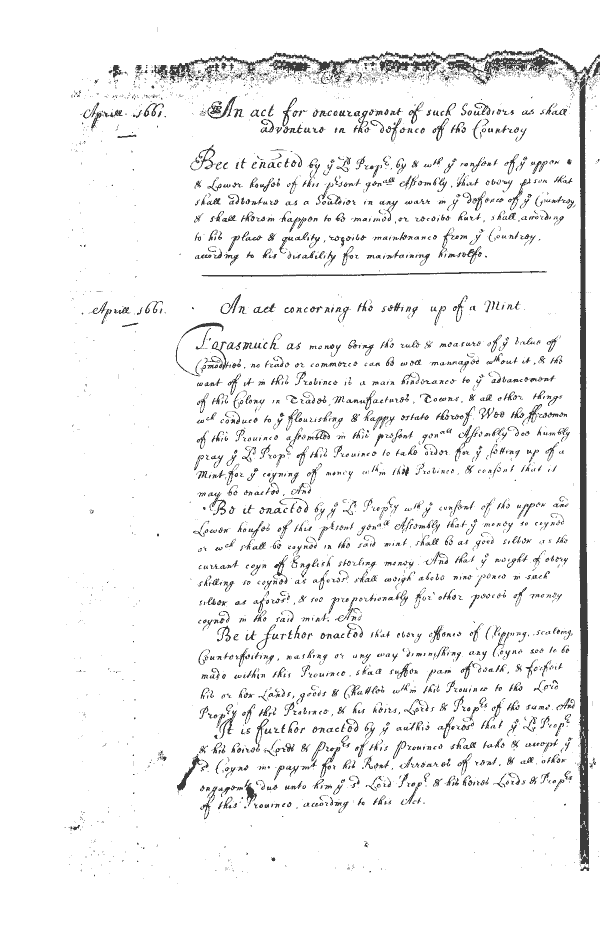 Aprill. 1661.
An act for encouragement of such Souldiers as shall
adventure in the defence of the Countrey
Bee it enacted by yᵉ Lᵈ Propʳ, by & wᵗʰ yᵉ consent of yᵉ upper
& Lower houses of this pʳsent genᵃˡˡ Assembly, that every pson that
shall adventure as a Souldier in any warr in yᵉ defence of yᵉ Countrey,
& shall therein happen to be maimed, or receive hurt, shall, acording
to his place & quality, receive maintenance from yᵉ Countrey,
acording to his disability for maintaining himselfe.
Aprill 1661.
An act concerning the setting up of a Mint
Forasmuch as money being the rule & measure of yᵉ value of
Comodities, no trade or commerce can be well mannaged wᵗʰout it, & the
want of it in this Province is a main hinderance to yᵉ advancement
of this Colony in Trades, Manufactures, Towns, & all other things
wᶜʰ conduce to yᵉ flourishing & happy estate thereof. Wee the ffreemen
of this Province assembled in this present genᵃˡˡ Assembly doe humbly
pray yᵉ Lᵈ Propʳ of this Province to take order for yᵉ setting up of a
Mint for yᵉ coyning of money wᵗʰin this Province, & consent that it
may be enacted, And
Be it enacted by yᵉ Lᵈ Propʳy wᵗʰ yᵉ consent of the upper and
Lower houses of this pʳsent genᵃˡˡ Assembly that yᵉ money so coyned
or wᶜʰ shall be coyned in the said mint, shall be as good silver as the
currant coyn of English sterling money. And that yᵉ weight of every
shilling so coyned as aforesᵈ shall weigh above nine pence in such
silver as aforesᵈ, & soe proportionably for other peeces of money
coyned in the said mint. And
Be it further enacted that every offence of Clipping, scaleing,
Counterfeiting, washing or any way diminishing any Coyne soe to be
made within this Province, shall suffer pain of death, & forfeit
his or her Lands, goods & Chattles wᵗʰin this Province to the Lord
Propʳy of this Province, & his heirs, Lords & Propʳs of the same. And
It is further enacted by yᵉ authie aforesᵈ that yᵉ Lᵈ Propʳ
& his heires Lords & Propʳs of this Province shall take & accept yᵉ
sᵈ Coyne in paymᵗ for his Rent, Arreares of rent, & all other
engagemᵗˢ due unto him yᵉ sᵈ Lord Propʳ & his heires Lords & Propʳs
of this Province, according to this Act.